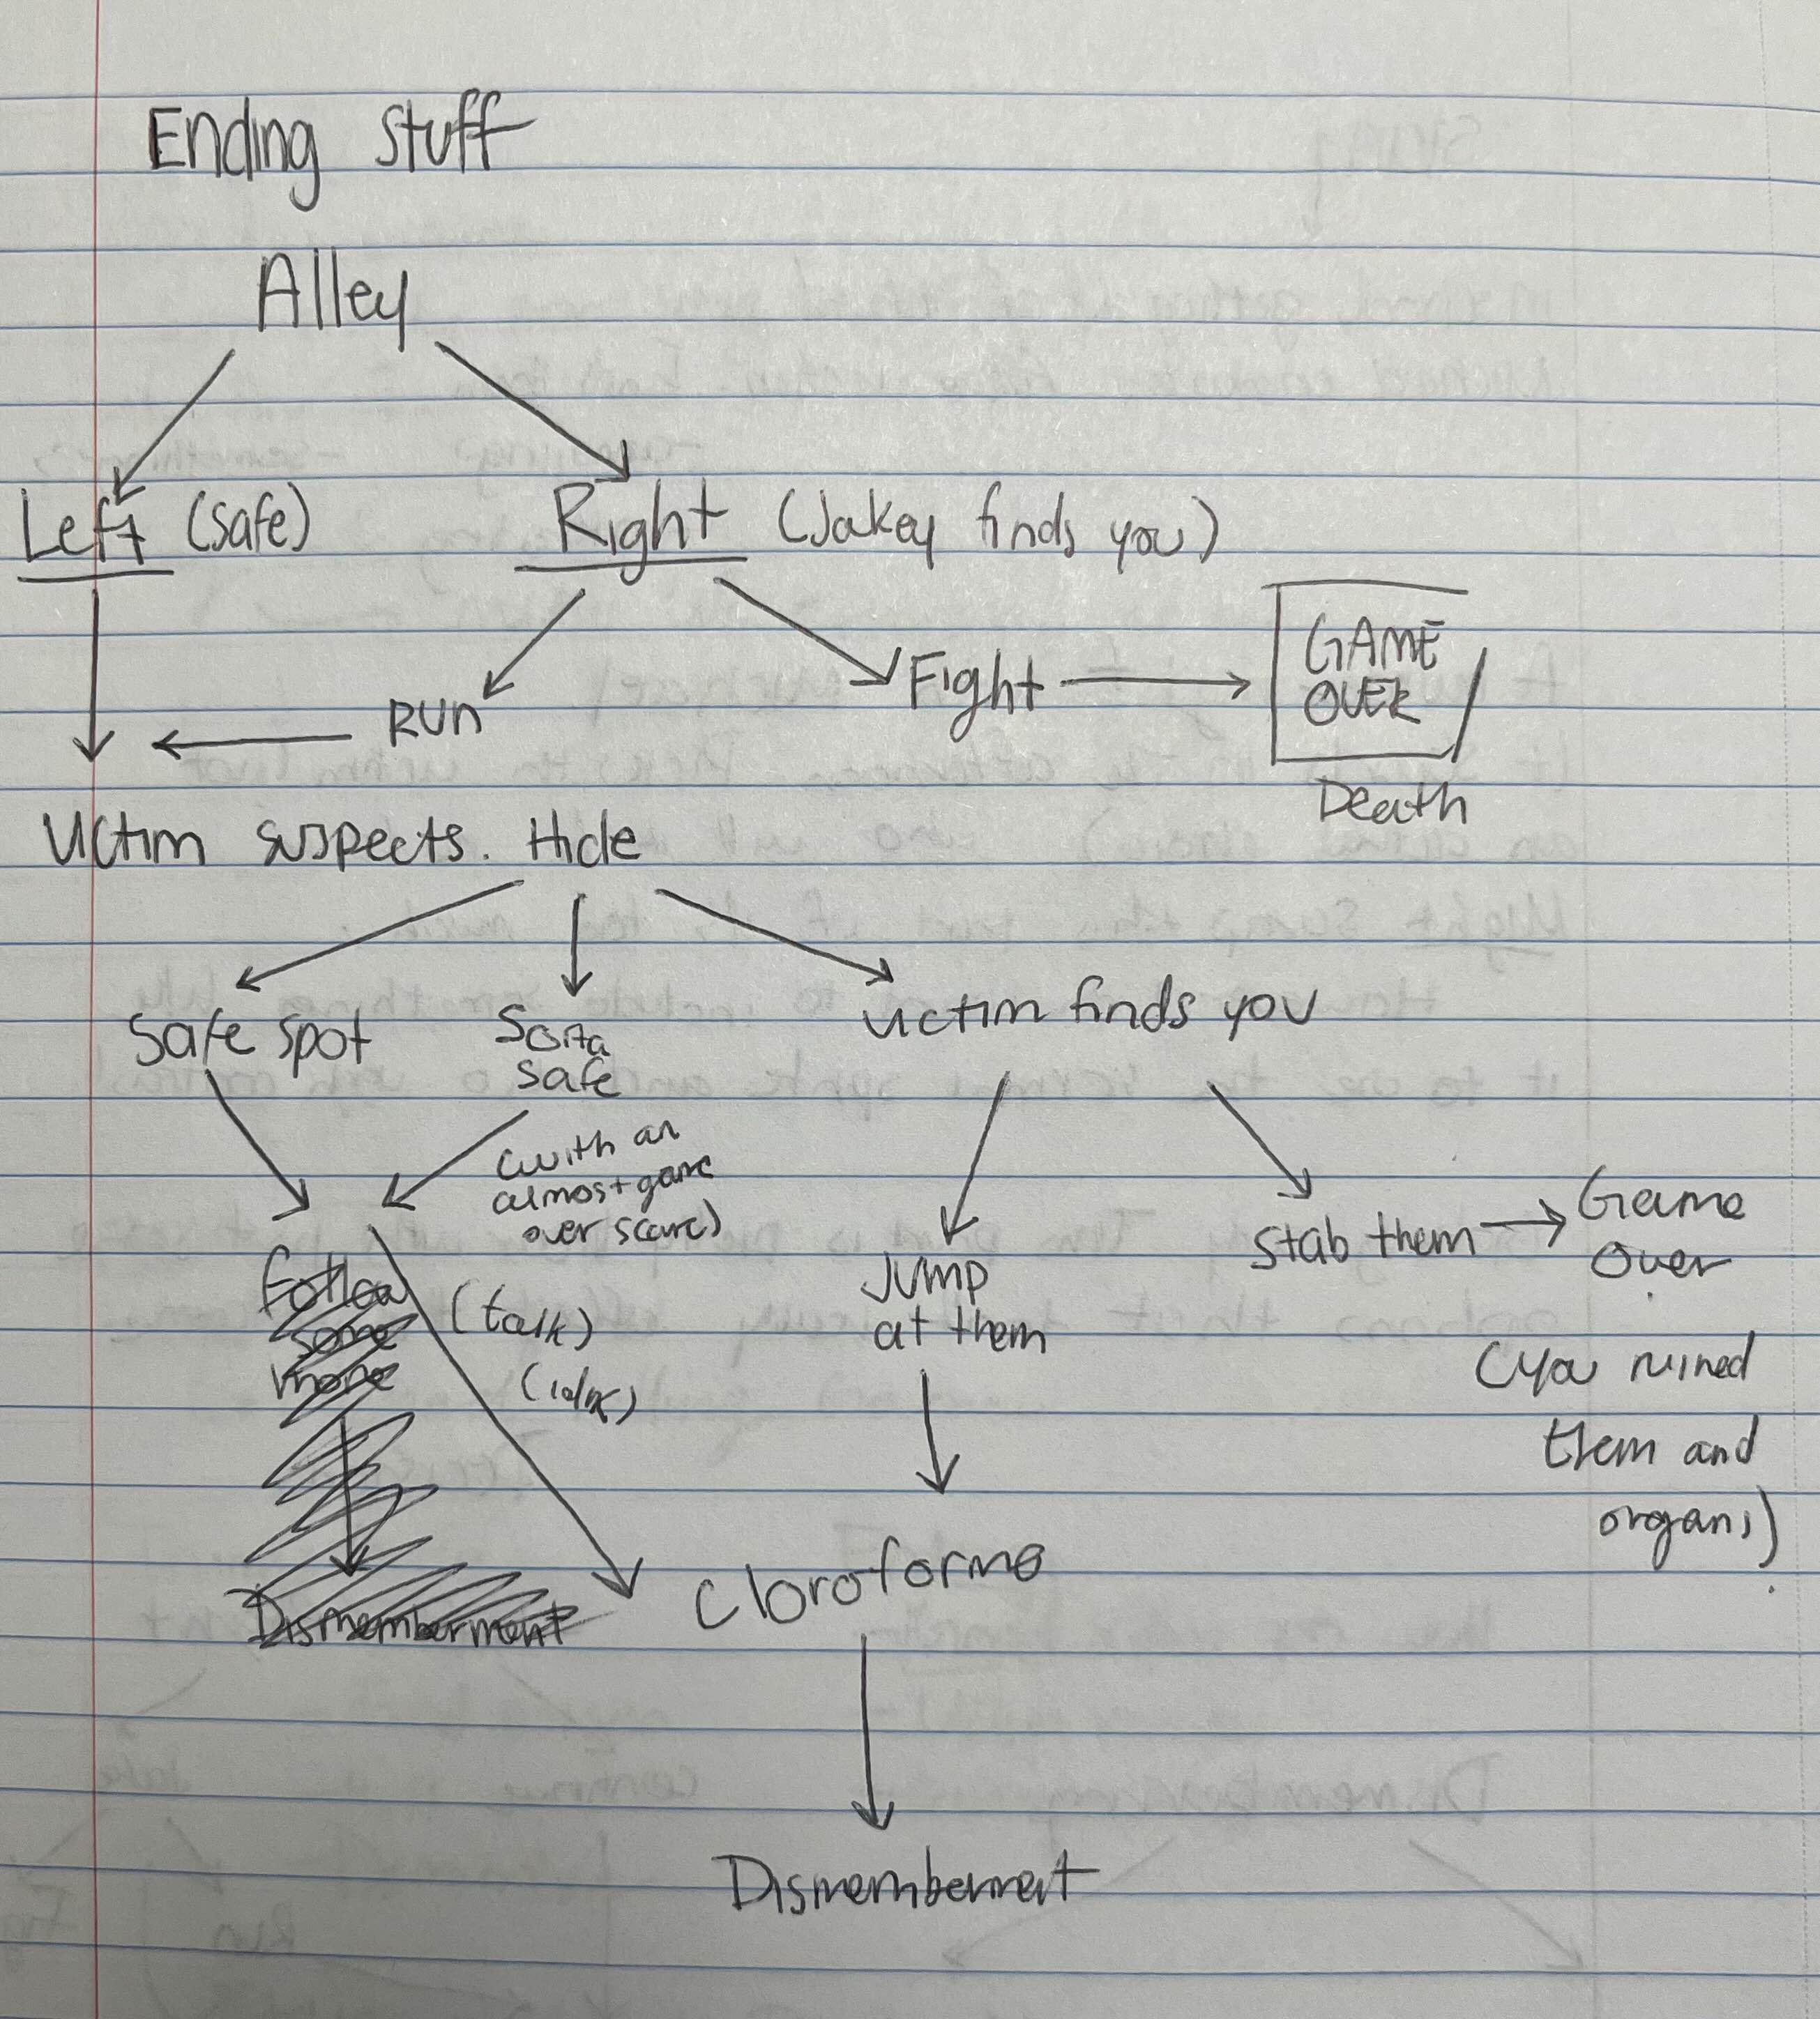 Ending stuff
Alley
Left (safe)
Right (Jakey finds you)
RUn
Fight
GAME
OVER
Death
Victim suspects. Hide
Safe spot
Sorta
safe
victim finds you
(with an
almost game
over scare)
Follow
some
more
(talk)
(idk)
Jump
at them
Stab them
Game
Over
(you ruined
them and
organs)
Cloroforme
Dismemberment
Dismemberment